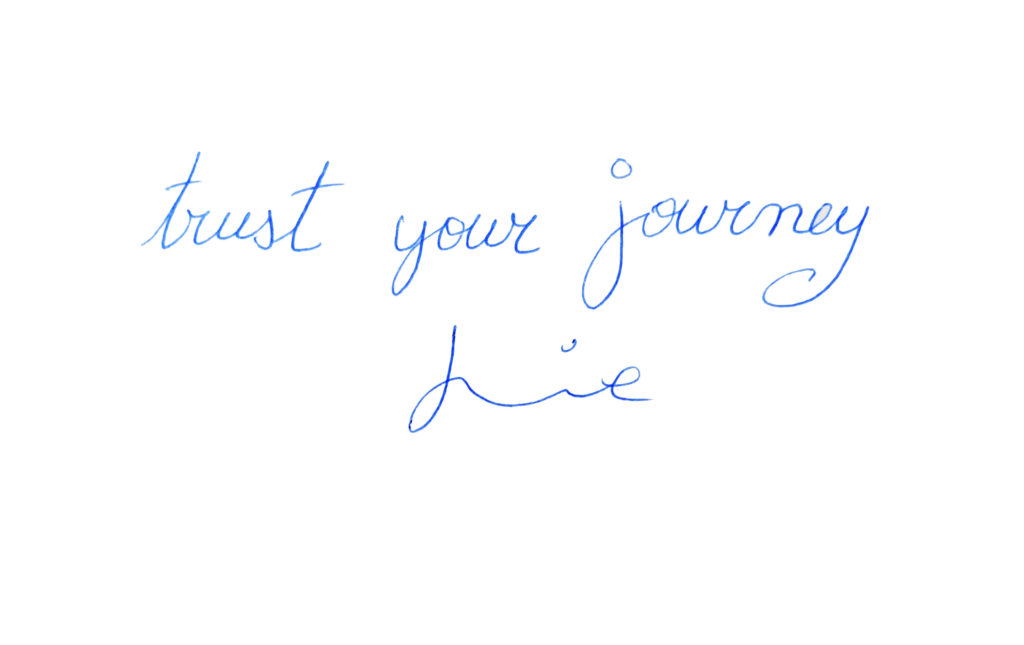 trust your journey